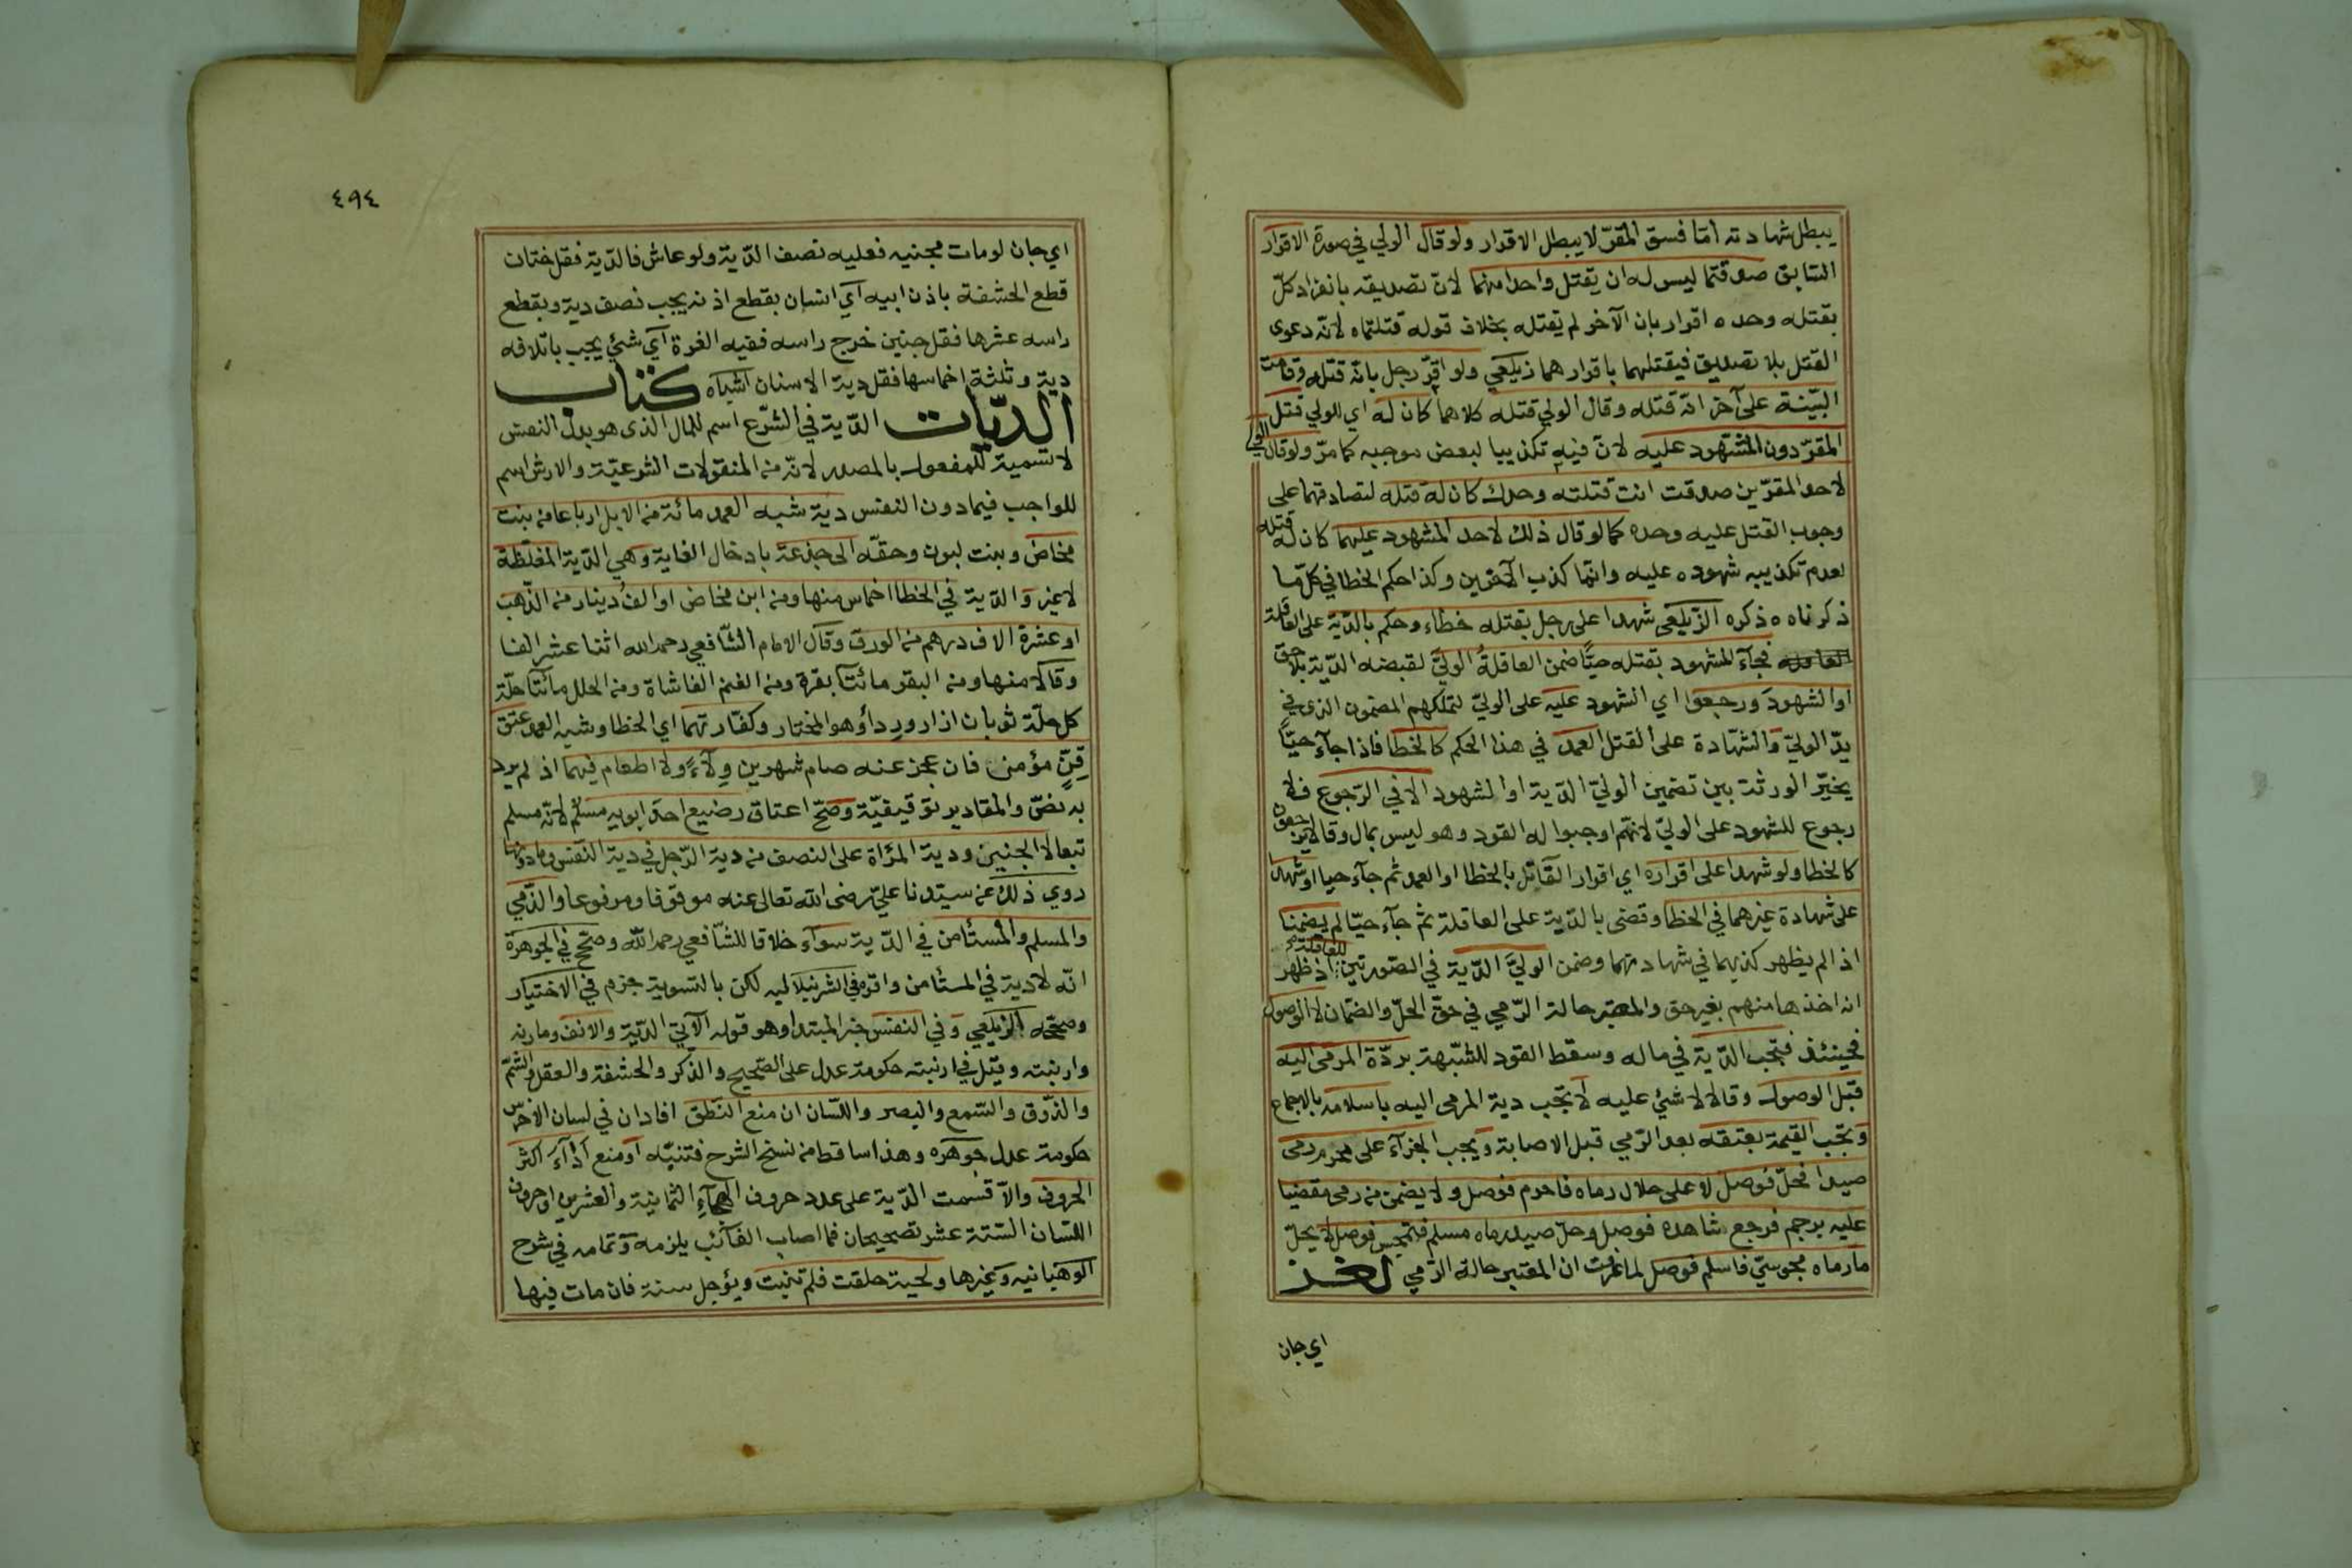 يبطل شهادته امّا فسق المقرّ لا يبطل الاقرار ولو قال الولي في صورة الاقرار
السّابق صدقتما ليس له ان يقتل واحدا منهما لانّ تصديقه بانفراد كلّ
بقتله وحده اقرار بان الآخر لم يقتله بخلاف قوله قتلتماه لانّه دعوى
القتل بلا تصديق فيقتلهما باقرارهما زيلعي ولو اقرّ رجل بانّه قتله وقامت
البيّنة على آخر انّه قتله وقال الولي قتله كلاهما كان له اي للولي قتل
المقرّ دون المشهود عليه لانّ فيه تكذيبا لبعض موجبه كما مرّ ولو قال الولي
لاحد المقرّين صدقت انت قتلته وحدك كان له قتله لتصادقهما على
وجوب القتل عليه وحده كما لو قال ذلك لاحد المشهود عليهما كان له قتله
لعدم تكذيبه شهوده عليه وانّما كذب الآخرين وكذا حكم الخطا في كلّ ما
ذكرناه ذكره الزّيلعي شهدا على رجل بقتله خطاء وحكم بالدّية على العاقلة
فجآء المشهود بقتله حيّا ضمن العاقلة الوليّ لقبضه الدّية بلا حق
او الشهود ورجعوا اي الشهود عليه على الوليّ لتملكهم المضمون الذى في
يدّ الوليّ والشّهادة على القتل العمد في هذا الحكم كالخطا فاذا جآء حيّاً
يخيّر الورثة بين تضمين الوليّ الدّية او الشهود الا في الرّجوع فلا
رجوع للشهود على الوليّ لانّهم اوجبوا له القود وهو ليس بمال وقالا يرجعون
كالخطا ولو شهدا على اقراره اي اقرار القآتل بالخطا او العمد ثم جآء حيا او شهدا
على شهادة غيرهما في الخطا وقضى بالدّية على العاقلة ثم جآء حيّا لم يضمنا
اذ الم يظهر كذبهما في شهادتهما وضمن الوليّ الدّية في الصّورتين للعاقلة اذ ظهر
انه اخذها منهم بغير حق والمعتبر حالة الرّمي في حقّ الحلّ والضّمان لا الوصول
فحينئذ فتجب الدّية في ماله وسقط القود للشّبهة بردّة المرمى اليه
قبل الوصول وقالا لا شئ عليه لا تجب دية المرمى اليه باسلامه بالاجماع
وتجب القيمة بعتقه بعد الرّمي قبل الاصابة ويجب الجزآء على محرم رمى
صيدا فحلّ فوصل لا على حلال رماه فاحرم فوصل ولا يضمن من رمى مقضيا
عليه برجم فرجع شاهده فوصل وحلّ صيد رماه مسلم فتمجس فوصل لا يحلّ
ما رماه مجوسيّ فاسلم فوصل لما عرفت ان المعتبر حالة الرّمي لغز
اي جان
٤٩٤
اي جان لومات مجنيه فعليه نصف الدّية ولو عاش فالدّية فقل ختان
قطع الحشفة باذن ابيه اي انسان بقطع اذنه يجب نصف دية وبقطع
راسه عشرها فقل جنين خرج راسه ففيه الغرة اي شئ يجب باتلافه
دية وثلثة اخماسها فقل دية الاسنان اشباه كتاب
الديّات الدّية في الشّرع اسم للمال الذى هو بدل النفس
لا تسمية للمفعول بالمصدر لانّه من المنقولات الشرعيّة والارش اسم
للواجب فيما دون النفس دية شبه العمد مائة من الابل ارباعا من بنت
مخاض وبنت لبون وحقّه الى جذعة بادخال الغاية وهي الدّية المغلظة
لا غير والدّية في الخطا اخماس منها ومن ابن مخاض او الف دينار من الذّهب
او عشرة الاف درهم من الورق وقال الامام الشّافعي رحمه الله اثنا عشر الفا
وقالا منها ومن البقر مائتا بقرة ومن الغنم الفا شاة ومن الحلل مائتا حلّة
كل حلّة ثوبان ازار وردآؤ هو المختار وكفّارتهما اي الخطا وشبه العمد عتق
قنّ مؤمن فان عجز عنه صام شهرين ولآءً ولا اطعام فيهما اذ لم يرد
به نصّ والمقادير توقيفيّة وصحّ اعتاق رضيع احد ابويه مسلم لانّه مسلم
تبعا لا الجنين ودية المرأة على النصف من دية الرّجل في دية النّفس وما دونها
روي ذلك عن سيّدنا عليّ رضى الله تعالى عنه موقوفا ومرفوعا والذّمي
والمسلم والمستأمن في الدّية سوآء خلافا للشّافعي رحمه الله وصحّح في الجوهرة
انّه لا دية في المستأمن واقره في الشرنبلاليه لكن بالتسوية جزم في الاختيار
وصحّحه الزّيلعي وفي النفس خبر المبتدا وهو قوله الآتي الدّية والانف ومارنه
وارنبته وقيل في ارنبته حكومة عدل على الصّحيح والذكر والحشفة والعقل والشّمّ
والذّوق والسّمع والبصر واللّسان ان منع النّطق افاد ان في لسان الاخرس
حكومة عدل جوهره وهذا ساقط من نسخ الشرح فتنبّه او منع اذآء اكثر
الحروف والاّ قسمت الدّية على عدد حروف الهجآء الثمانية والعشرين او حروف
اللّسان السّتة عشر تصحيحان فما اصاب الفآئت يلزمه وتمامه في شرح
الوهبانيه وغيرها ولحية حلقت فلم تنبت ويؤجل سنة فان مات فيها